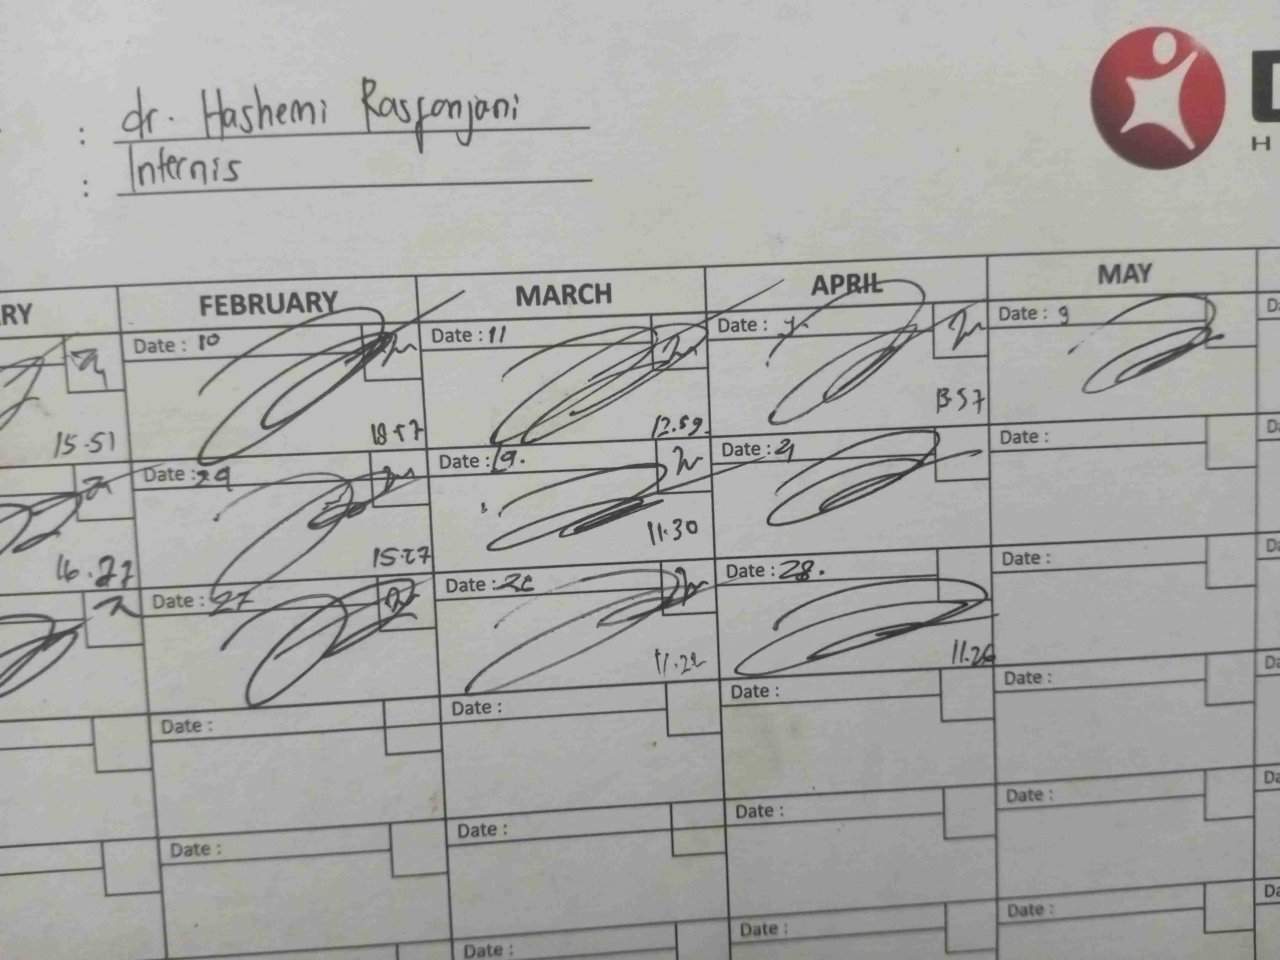 : dr. Hashemi Rasfonjani
: Internis
H
RY FEBRUARY MARCH APRIL MAY
Date : 10 Date : 11 Date : Date : 9 Da
15.51 18.57 12.59. 13.57
Date : 29 Date : 19. Date : Date : Da
16.27 15.27 11.30
Date : 27 Date : Date : 28. Date : Da
11.22 11.26
Date : Date : Date : Date : Da
Date : Date : Date : Date : Da
Date : Date : Date : Da